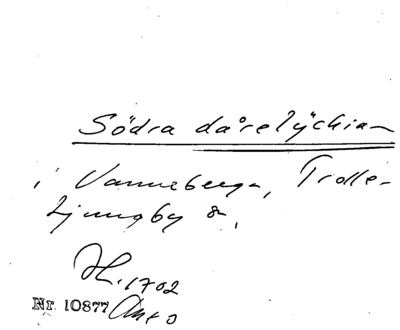 Södra dårelÿckian
i Vanneberga, Trolle-
Ljungby sn,
H. 1702
Nr. 10877